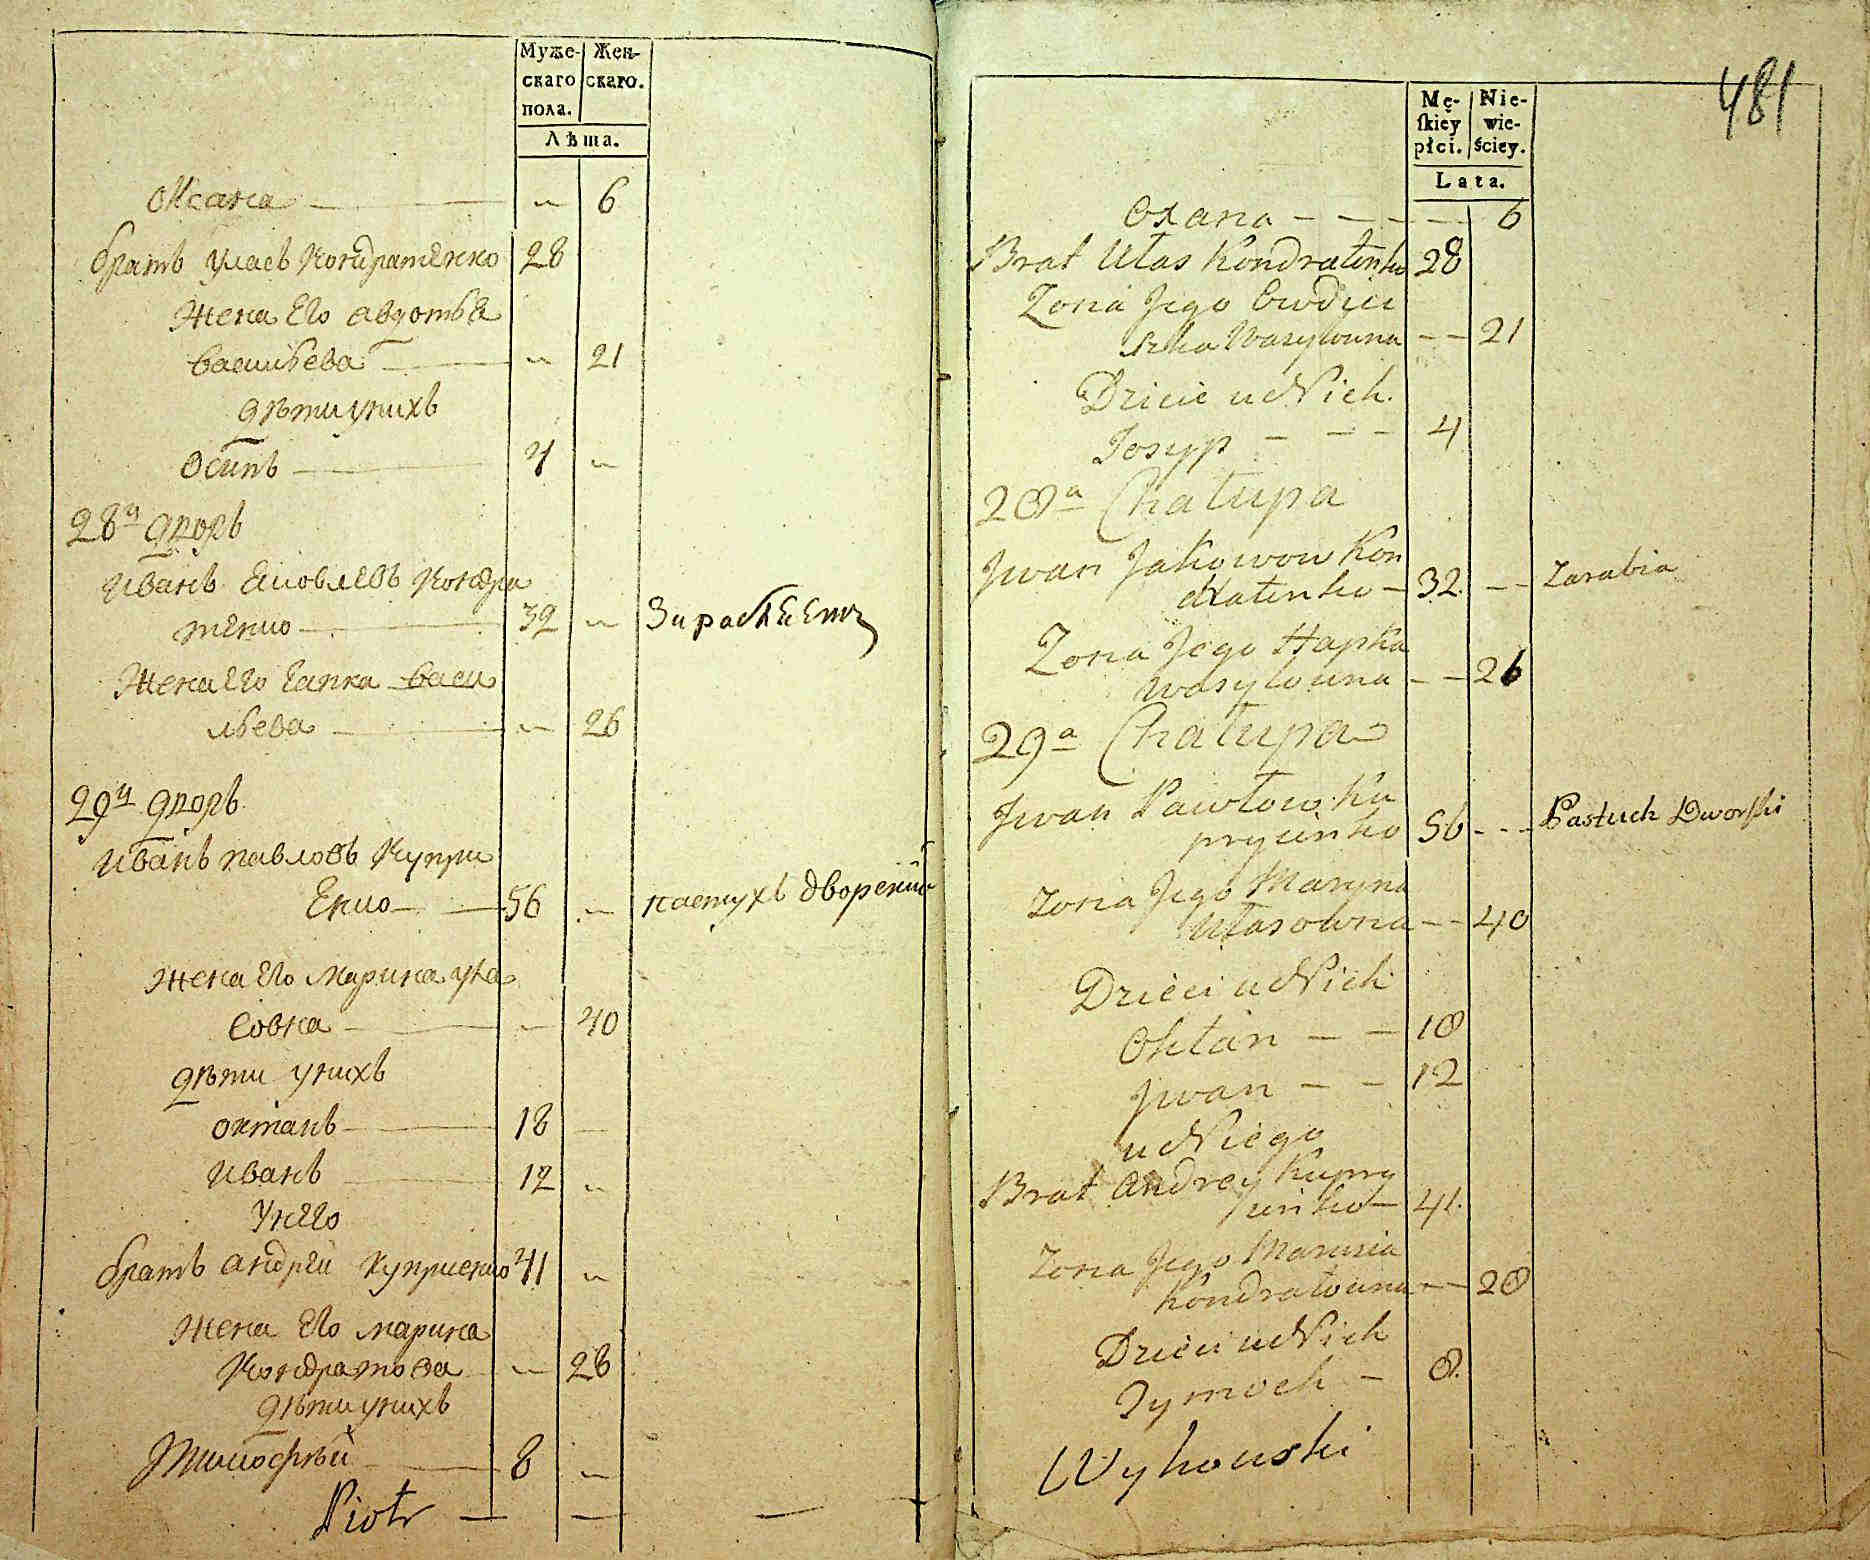 Муже-
скаго
пола.
Жен-
скаго.
Лѣта.
Оксана — „ 6
братъ Уласъ Кондратенко 28
Жена Его авдотья
васильева — „ 21
дѣти унихъ
Осипъ — 4 „
28й дворъ
Иванъ Яковлевъ Кондра
тенко — 32 „ Зарабляетъ
Жена Его Гапка васи
льева — „ 26
29й дворъ
Иванъ павловъ Купри
Енко — 56 „ пастухъ дворский
Жена Его Марина ула
совна — „ 40
дѣти унихъ
октанъ — 18 —
Иванъ — 12 „
Унего
братъ андрей Куприенко 41 „
Жена Его марина
Кондратова — 28
дѣти унихъ
Тимофѣй — 8 „
Piotr — — —
481
Mę-
skiey
płci.
Nie-
wie-
ściey.
Lata.
Oxana — — — — 6
Brat Ułas Kondratenko 28
Zona Jego Ewdu
szka Wasylowna — — 21
Dzieci u Nich.
Josyp — — — 4
28a Chałupa
Jwan Jakowow Kon
dratenko — 32 — — Zarabia
Zona Jego Hapka
Wasylowna — — 26
29a Chałupa
Jwan Pawłow Ku
pryienko 56 - - - Pastuch Dworski
Zona Jego Maryna
Ułasowna — — 40
Dzieci u Nich
Oktan — — 18
Jwan — — 12
u Niego
Brat Andrey Kupry
jenko — 41.
Zona Jego Marusia
Kondratowna — — 28
Dzieci u Nich
Tymoch — 8.
Wyhowski